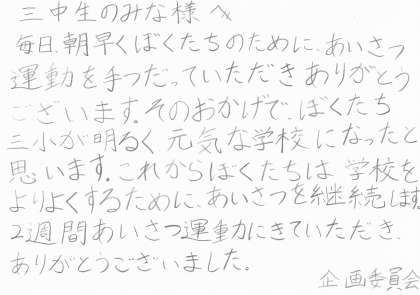 三中生のみな様へ
毎日、朝早くぼくたちのために、あいさつ
運動を手つだっていただきありがとう
ございます。そのおかげで、ぼくたち
三小が明るく元気な学校になったと
思います。これからぼくたちは、学校を
よりよくするために、あいさつを継続します。
2週間あいさつ運動にきていただき、
ありがとうございました。
企画委員会